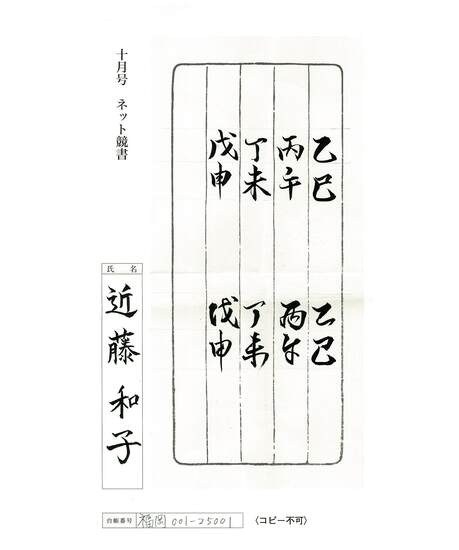 十月号　ネット競書
乙巳　乙巳
丙午　丙午
丁未　丁未
戊申　戊申
氏名
近藤和子
台帳番号 福岡 001-25001 〈コピー不可〉